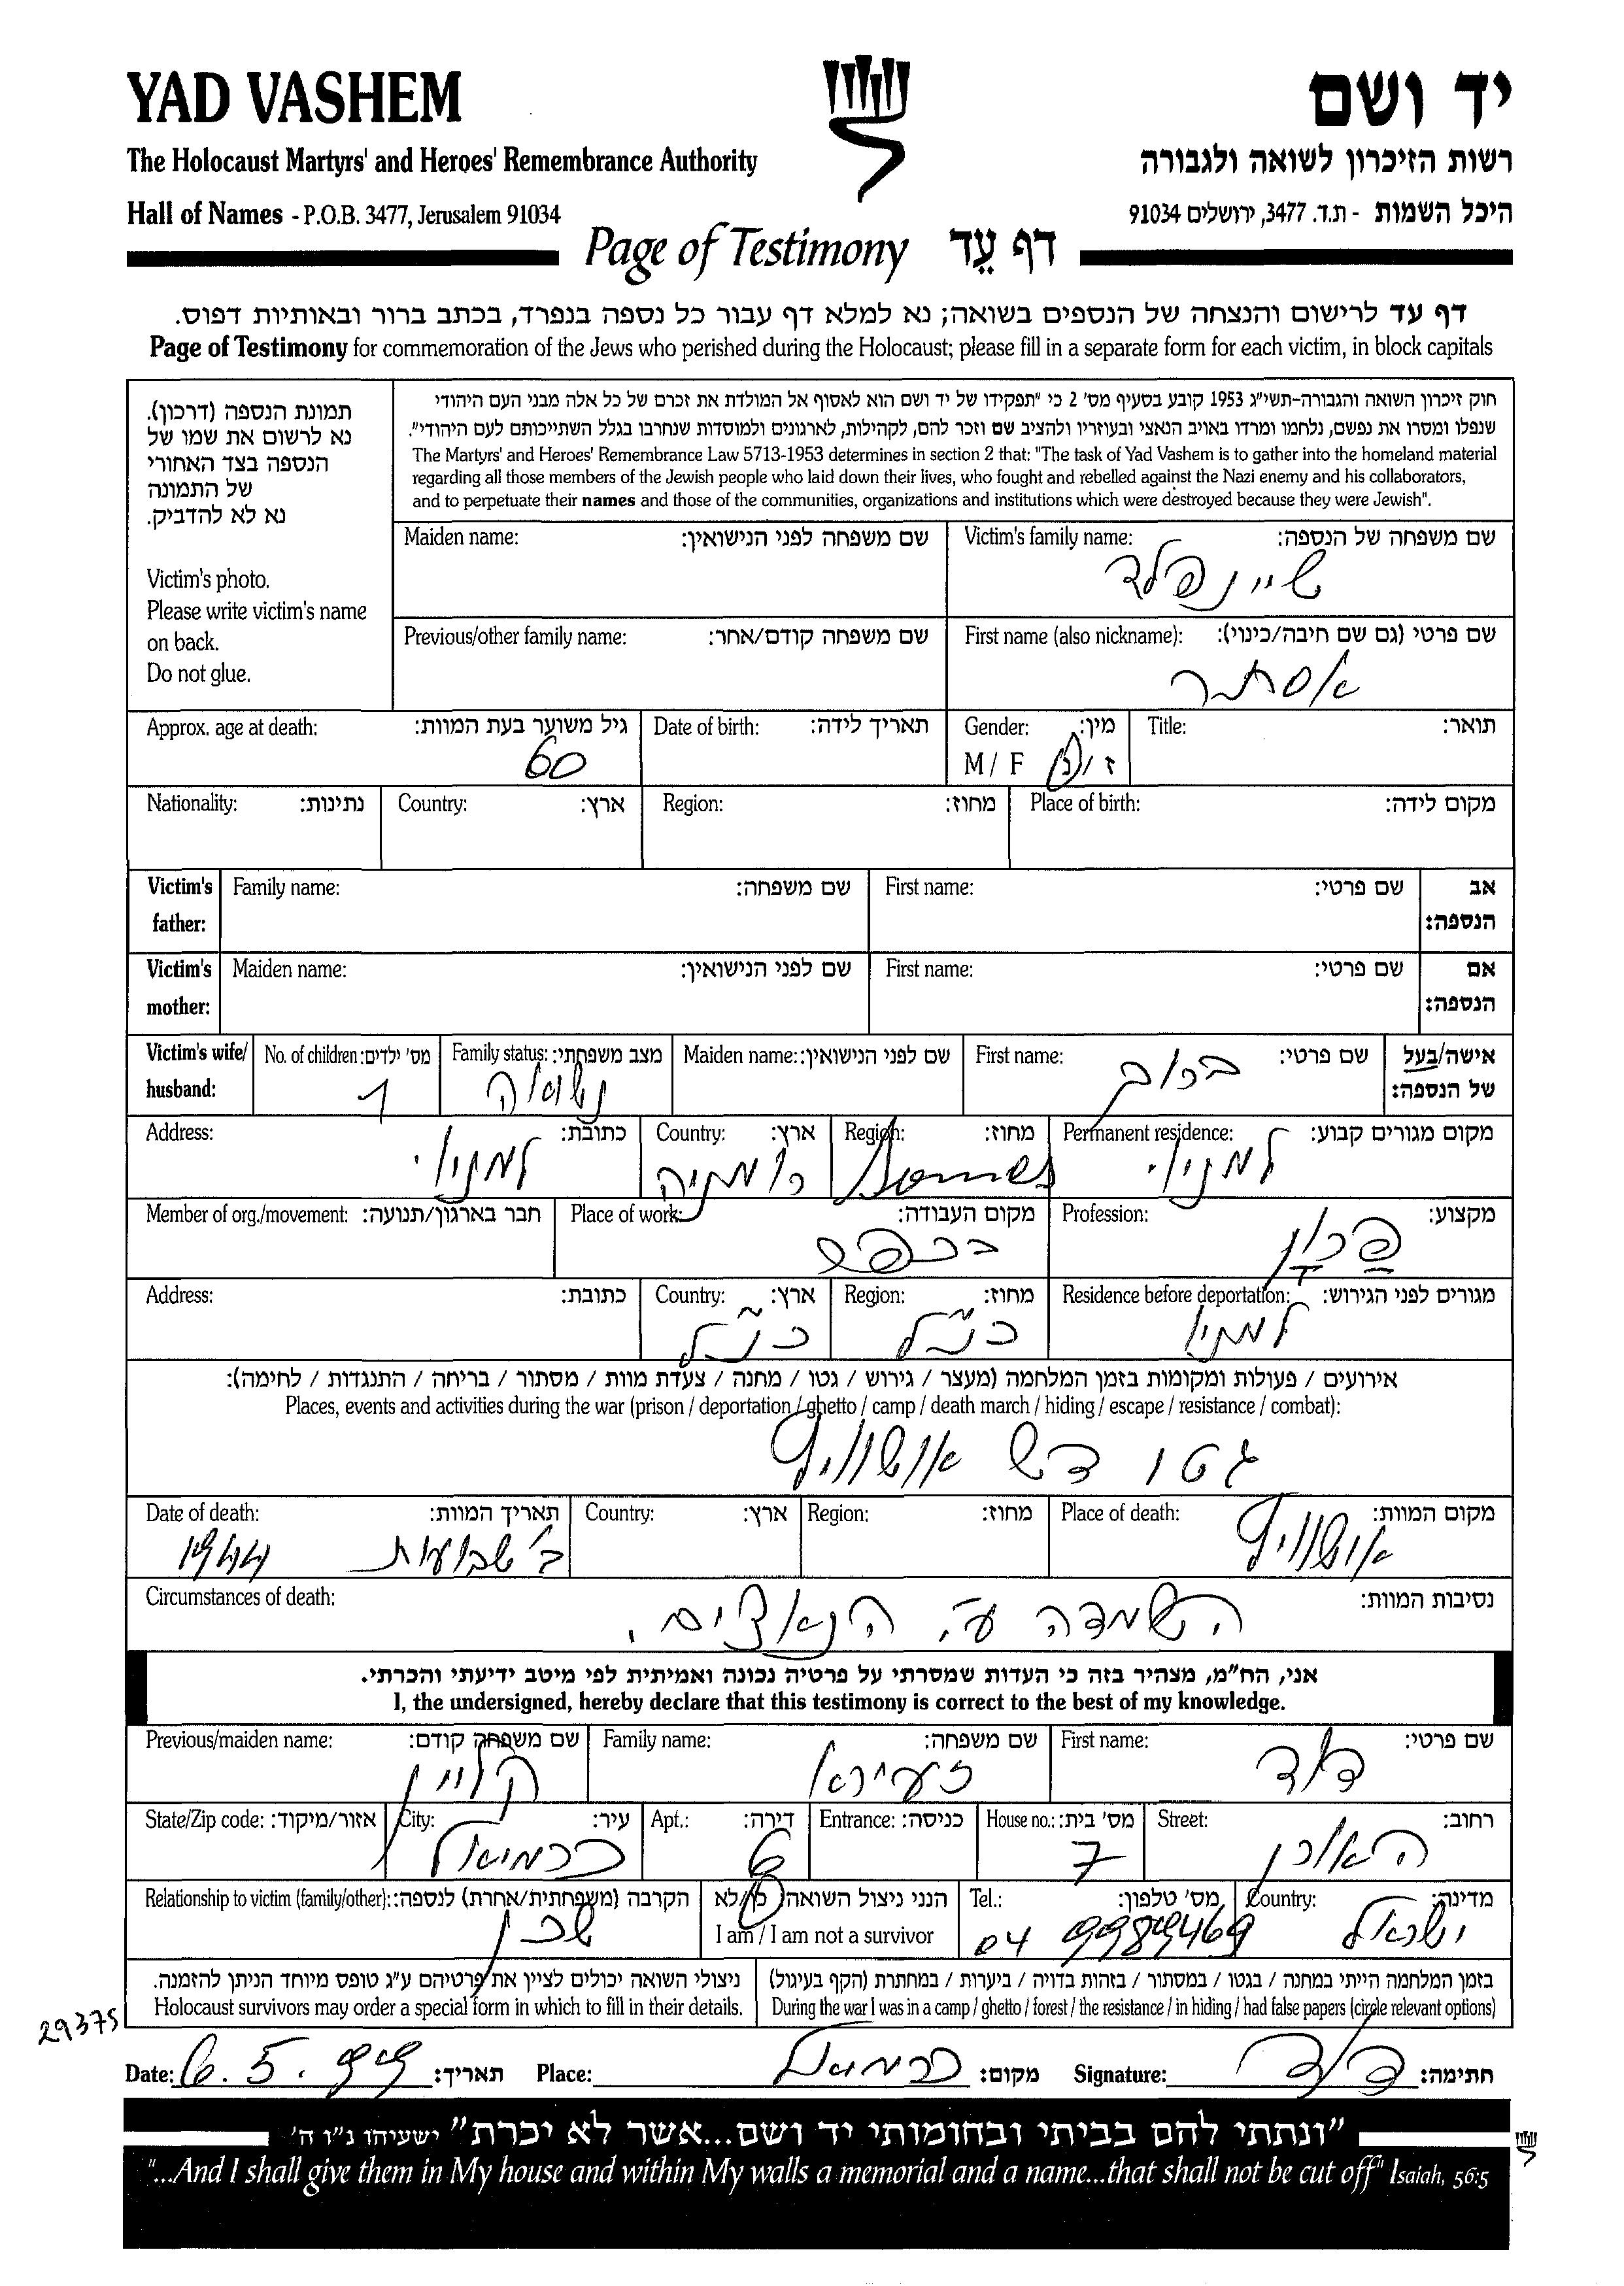 YAD VASHEM יד ושם
The Holocaust Martyrs' and Heroes' Remembrance Authority רשות הזיכרון לשואה ולגבורה
Hall of Names - P.O.B. 3477, Jerusalem 91034 היכל השמות - ת.ד. 3477, ירושלים 91034
Page of Testimony דף עֵד
דף עד לרישום והנצחה של הנספים בשואה; נא למלא דף עבור כל נספה בנפרד, בכתב ברור ובאותיות דפוס.
Page of Testimony for commemoration of the Jews who perished during the Holocaust; please fill in a separate form for each victim, in block capitals
תמונת הנספה (דרכון).
נא לרשום את שמו של
הנספה בצד האחורי
של התמונה
נא לא להדביק.
Victim's photo.
Please write victim's name
on back.
Do not glue.
חוק זיכרון השואה והגבורה-תשי"ג 1953 קובע בסעיף מס' 2 כי "תפקידו של יד ושם הוא לאסוף אל המולדת את זכרם של כל אלה מבני העם היהודי
שנפלו ומסרו את נפשם, נלחמו ומרדו באויב הנאצי ובעוזריו ולהציב שם וזכר להם, לקהילות, לארגונים ולמוסדות שנחרבו בגלל השתייכותם לעם היהודי".
The Martyrs' and Heroes' Remembrance Law 5713-1953 determines in section 2 that: "The task of Yad Vashem is to gather into the homeland material
regarding all those members of the Jewish people who laid down their lives, who fought and rebelled against the Nazi enemy and his collaborators,
and to perpetuate their names and those of the communities, organizations and institutions which were destroyed because they were Jewish".
Maiden name: שם משפחה לפני הנישואין: Victim's family name: שם משפחה של הנספה:
שיינפלד
Previous/other family name: שם משפחה קודם/אחר: First name (also nickname): שם פרטי (גם שם חיבה/כינוי):
אסתר
Approx. age at death: גיל משוער בעת המוות: Date of birth: תאריך לידה: Gender: מין: Title: תואר:
60 M / F ז / נ
Nationality: נתינות: Country: ארץ: Region: מחוז: Place of birth: מקום לידה:
Victim's father: Family name: שם משפחה: First name: שם פרטי: אב הנספה:
Victim's mother: Maiden name: שם לפני הנישואין: First name: שם פרטי: אם הנספה:
Victim's wife/ husband: No. of children: מס' ילדים: Family status: מצב משפחתי: Maiden name: שם לפני הנישואין: First name: שם פרטי: אישה/בעל של הנספה:
1 נשואה
Address: כתובת: Country: ארץ: Region: מחוז: Permanent residence: מקום מגורים קבוע:
רומניה Somes
Member of org./movement: חבר בארגון/תנועה: Place of work: מקום העבודה: Profession: מקצוע:
Address: כתובת: Country: ארץ: Region: מחוז: Residence before deportation: מגורים לפני הגירוש:
כנ"ל כנ"ל
אירועים / פעולות ומקומות בזמן המלחמה (מעצר / גירוש / גטו / מחנה / צעדת מוות / מסתור / בריחה / התנגדות / לחימה):
Places, events and activities during the war (prison / deportation / ghetto / camp / death march / hiding / escape / resistance / combat):
גטו דש אושוויץ
Date of death: תאריך המוות: Country: ארץ: Region: מחוז: Place of death: מקום המוות:
1944 ב' שבועות אושוויץ
Circumstances of death: נסיבות המוות:
השמדה ע"י הנאצים.
אני, הח"מ, מצהיר בזה כי העדות שמסרתי על פרטיה נכונה ואמיתית לפי מיטב ידיעתי והכרתי.
I, the undersigned, hereby declare that this testimony is correct to the best of my knowledge.
Previous/maiden name: שם משפחה קודם: Family name: שם משפחה: First name: שם פרטי:
קליין זעירא דוד
State/Zip code: אזור/מיקוד: City: עיר: Apt.: דירה: Entrance: כניסה: House no.: מס' בית: Street: רחוב:
כרמיאל 6 7 האורן
Relationship to victim (family/other): הקרבה (משפחתית/אחרת) לנספה: הנני ניצול השואה: כן/לא Tel.: מס' טלפון: Country: מדינה:
שכן I am / I am not a survivor 04 9989469 ישראל
ניצולי השואה יכולים לציין את פרטיהם ע"ג טופס מיוחד הניתן להזמנה. בזמן המלחמה הייתי במחנה / בגטו / במסתור / בזהות בדויה / ביערות / במחתרת (הקף בעיגול)
Holocaust survivors may order a special form in which to fill in their details. During the war I was in a camp / ghetto / forest / the resistance / in hiding / had false papers (circle relevant options)
29375
Date: 6.5.99 תאריך: Place: כרמיאל מקום: Signature: דוד חתימה:
"ונתתי להם בביתי ובחומותי יד ושם...אשר לא יכרת" ישעיהו נ"ו ה'
"...And I shall give them in My house and within My walls a memorial and a name...that shall not be cut off" Isaiah, 56:5